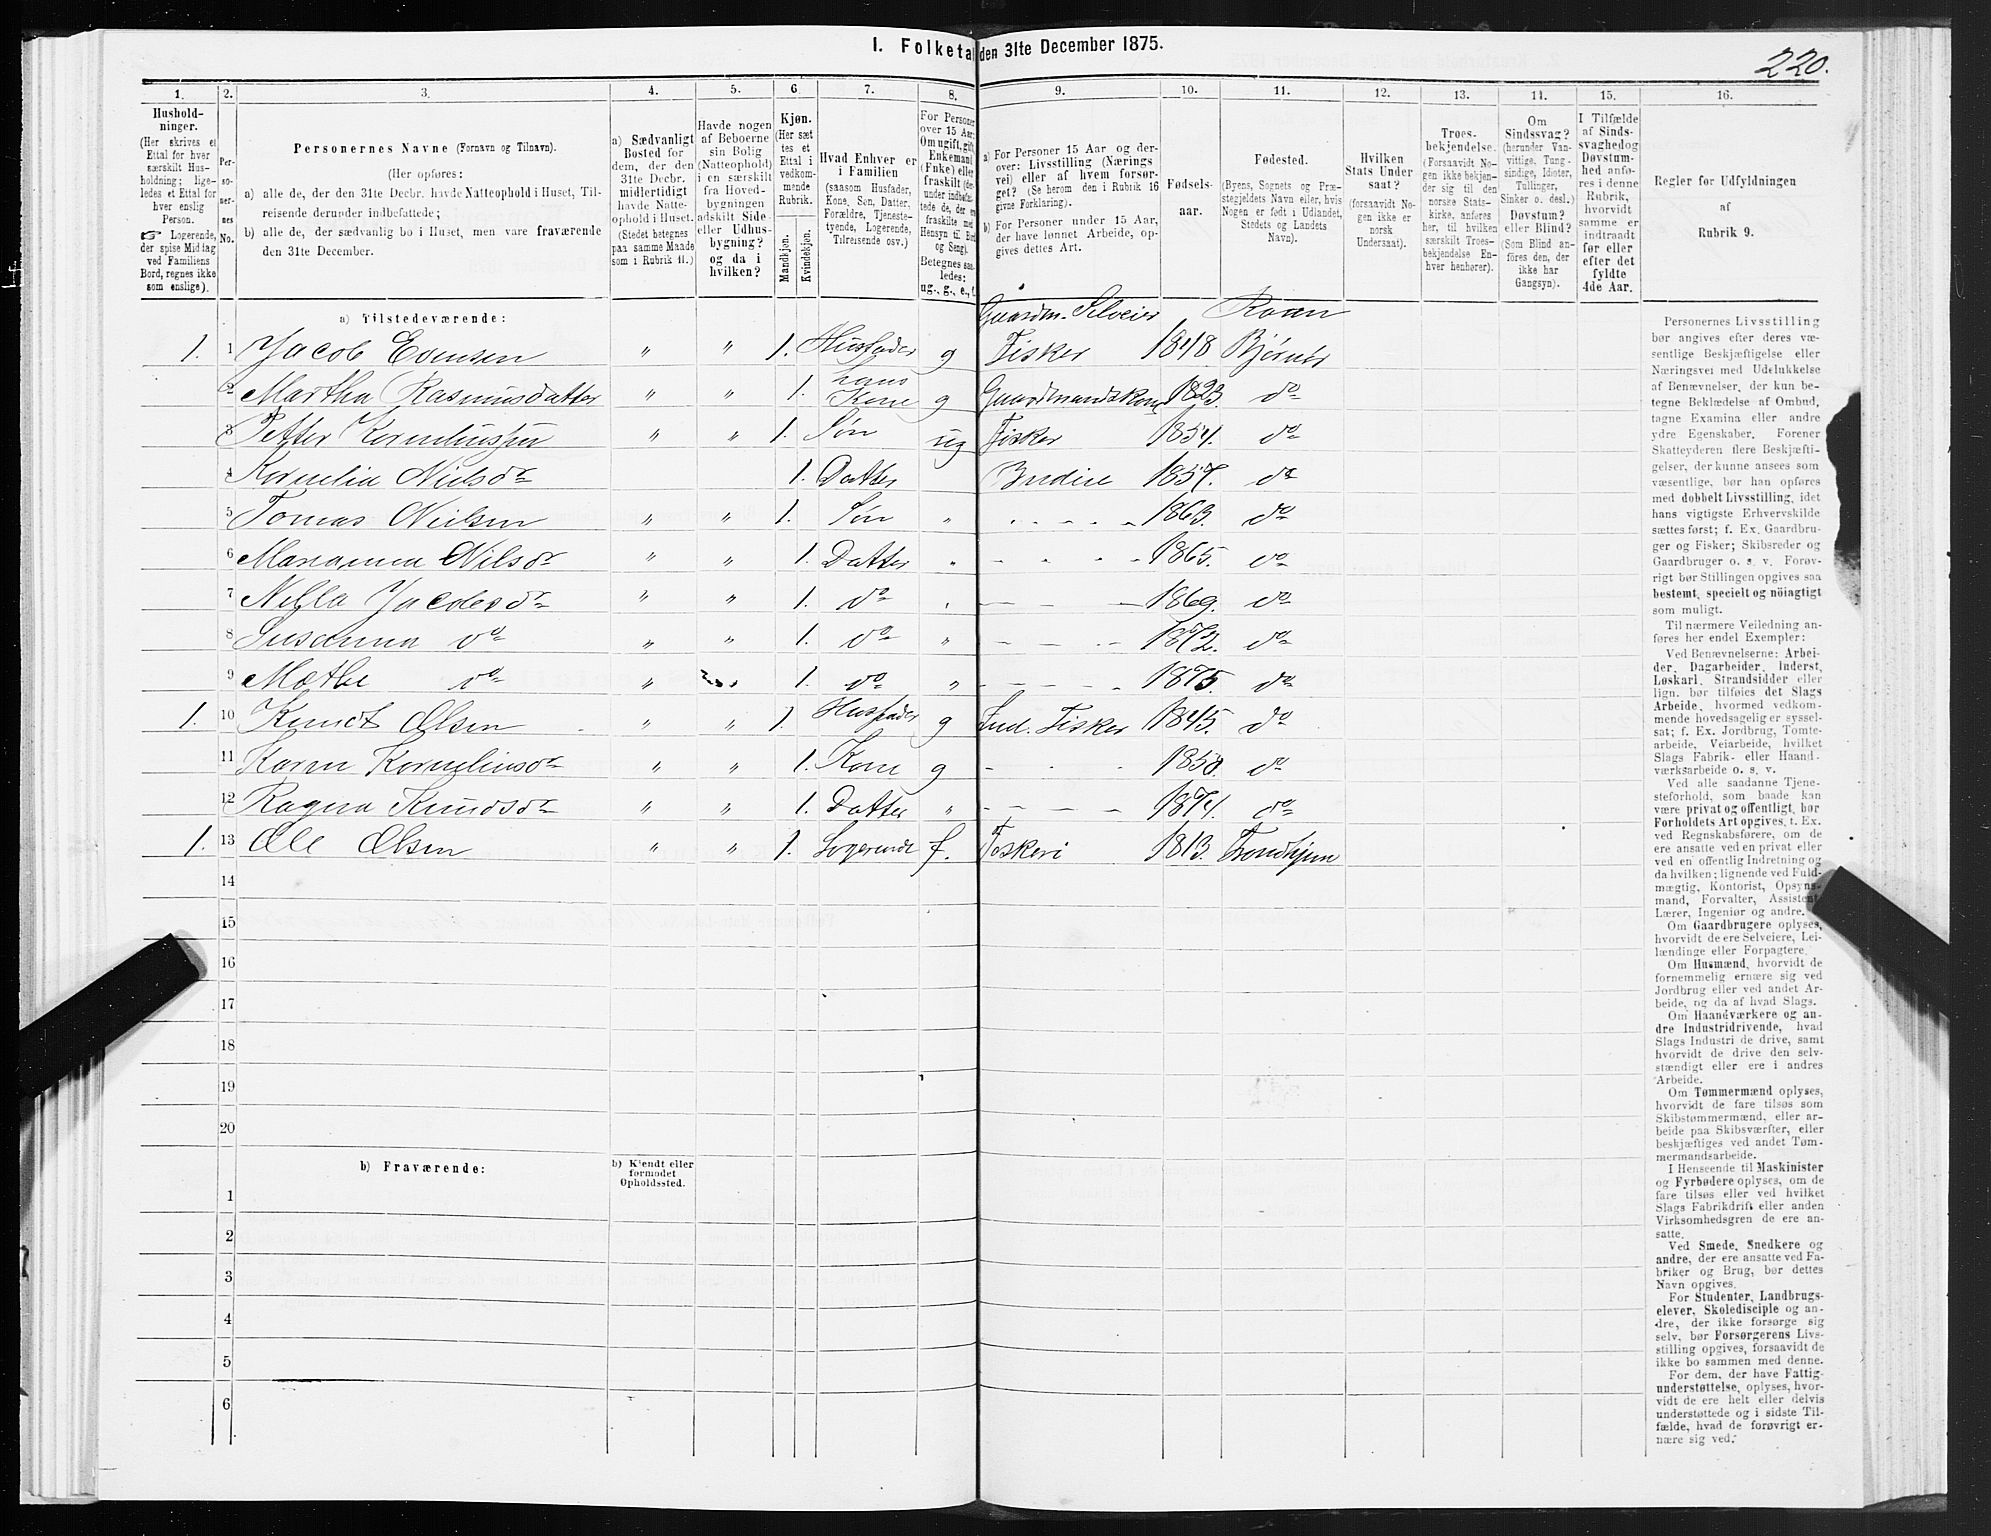 I. Folketa den 31te December 1875.
220.
1. 2. 3. 4. 5. 6. 7. 8. 9. 10. 11. 12. 13. 14. 15. 16.
Hushold-
ninger.
(Her skrives et
Ettal for hver
særskilt Hus-
holdning; lige-
ledes et Ettal for
hver enslig
Person.
☞ Logerende,
der spise Middag
ved Familiens
Bord, regnes ikke
som enslige).
Per-
so-
ner-
nes
No.
Personernes Navne (Fornavn og Tilnavn).
(Her opføres:
a) alle de, der den 31te Decbr. havde Natteophold i Huset, Til-
reisende derunder indbefattede;
b) alle de, der sædvanlig bo i Huset, men vare fraværende
den 31te December.
a) Sædvanligt
Bosted for
dem, der den
31te Decbr.
midlertidigt
havde Natte-
ophold i Huset.
(Stedet betegnes
paa samme Maade
som i Rubrik 11.)
Havde nogen
af Beboerne
sin Bolig
(Natteophold)
i en særskilt
fra Hoved-
bygningen
adskilt Side-
eller Udhus-
bygning?
og da i
hvilken?
Kjøn.
(Her sæt-
tes et
Ettal i
vedkom-
mende
Rubrik.
Mandkjøn.
Kvindekjøn.
Hvad Enhver er
i Familien
(saasom Husfader,
Kone, Søn, Datter,
Forældre, Tjeneste-
tyende, Logerende,
Tilreisende osv.)
For Personer
over 15 Aar:
Om ugift, gift,
Enkemand
(Enke) eller
fraskilt (der-
under indbefat-
tede de, der er
fraskilte med
Hensyn til Bord
og Seng).
Betegnes saa-
ledes:
ug., g., e., f.
a) For Personer 15 Aar og der-
over: Livsstilling (Nærings-
vei) eller af hvem forsør-
get? (Se herom den i Rubrik 16
givne Forklaring).
b) For Personer under 15 Aar,
der have lønnet Arbeide, op-
gives dettes Art.
Fødsels-
aar.
Fødested.
(Byens, Sognets og Præ-
stegjeldets Navn eller, hvis
Nogen er født i Udlandet,
Stedets og Landets
Navn).
Hvilken
Stats Under-
saat?
(forsaavidt No-
gen ikke er
norsk
Undersaat).
Troes-
bekjendelse.
(Forsaavidt No-
gen ikke bekjen-
der sig til den
norske Stats-
kirke, anføres
her, til hvilken
særskilt Troes-
bekjendelse En-
hver henhører).
Om
Sindssvag?
(herunder Van-
vittige, Tung-
sindige, Idioter,
Tullinger,
Sinker o. desl.)
Døvstum?
eller Blind?
(Som Blind an-
føres den, der
ikke har
Gangsyn).
I Tilfælde
af Sinds-
svaghed og
Døvstum-
hed anfø-
res i denne
Rubrik,
hvorvidt
samme er
indtraadt
før eller
efter det
fyldte
4de Aar.
Regler for Udfyldningen
af
Rubrik 9.
a) Tilstedeværende:
Gaardm. Selveier Roan
1. 1 Jacob Evensen " " 1. Husfader g Fisker 1848 Bjørnør
2 Martha Rasmusdatter " " 1. hans Kone g Gaardmandskone 1823. do
3 Petter Korneliussen " " 1. Søn ug Fisker 1854. do
4 Kornelia Nielsdr 1. Datter 1857. do
5 Tomas Nielsen " " 1. Søn " 1863. do
6 Marianna Nilsdr " " 1. Datter " 1865. do
7 Nella Jacobsdr " " 1. do " 1869. do
8 Susanna do " " 1. do " 1872. do
9 Mæthe do " 1. do " 1875. do
1. 10 Knudt Olsen " " 1. Husfader g Ind. Fisker 1845. do
11 Karen Korneliusdr " " 1. Kone g 1850. do
12 Ragna Knudsdr " " 1. Datter " 1874. do
1. 13 Ole Olsen " " 1. Logerende f. Fiskeri 1813. Trondhjem
14
15
16
17
18
19
20
b) Fraværende:
b) Kjendt eller
formodet
Opholdssted.
1
2
3
4
5
6
Personernes Livsstilling
bør angives efter deres væ-
sentlige Beskjæftigelse eller
Næringsvei med Udelukkelse
af Benævnelser, der kun be-
tegne Beklædelse af Ombud,
tagne Examina eller andre
ydre Egenskaber. Forener
Skatteyderen flere Beskjæfti-
gelser, der kunne ansees som
væsentlige, bør han opføres
med dobbelt Livsstilling, idet
hans vigtigste Erhvervskilde
sættes først; f. Ex. Gaardbru-
ger og Fisker; Skibsreder og
Gaardbruger o. s. v. Forøv-
rigt bør Stillingen opgives saa
bestemt, specielt og nöiagtigt
som muligt.
Til nærmere Veiledning an-
føres her endel Exempler:
Ved Benævnelserne: Arbei-
der, Dagarbeider, Inderst,
Løskarl, Strandsidder eller
lign. bør tilføies det Slags
Arbeide, hvormed vedkom-
mende hovedsagelig er syssel-
sat; f. Ex. Jordbrug, Tomte-
arbeide, Veiarbeide, hvilket
Slags Fabrik- eller Haand-
værksarbeide o. s. v.
Ved alle saadanne Tjene-
steforhold, som baade kan
være privat og offentligt, bør
Forholdets Art opgives, t. Ex.
ved Regnskabsførere, om de
ere ansatte ved en privat eller
ved en offentlig Indretning og
da hvilken; lignende ved Fuld-
mægtig, Kontorist, Opsyns-
mand, Forvalter, Assistent,
Lærer, Ingeniør og andre.
Om Gaardbrugere oplyses,
hvorvidt de ere Selveiere, Lei-
lændinge eller Forpagtere.
Om Husmænd, hvorvidt de
fornemmelig ernære sig ved
Jordbrug eller ved andet Ar-
beide, og da af hvad Slags.
Om Haandværkere og an-
dre Industridrivende, hvad
Slags Industri de drive, samt
hvorvidt de drive den selv-
stændigt eller ere i andres
Arbeide.
Om Tømmermænd oplyses,
hvorvidt de fare tilsøs som
Skibstømmermænd, eller ar-
beide paa Skibsværfter, eller
beskjæftiges ved andet Tøm-
mermandsarbeide.
I Henseende til Maskinister
og Fyrbødere oplyses, om de
fare tilsøs eller ved hvilket
Slags Fabrikdrift eller anden
Virksomhedsgren de ere an-
satte.
Ved Smede, Snedkere og
andre, der ere ansatte ved Fa-
briker og Brug, bør dettes
Navn opgives.
For Studenter, Landbrugs-
elever, Skoledisciple og an-
dre, der ikke forsørge sig
selv, bør Forsørgerens Livs-
stilling opgives, forsaavidt de
ikke bo sammen med denne.
For dem, der have Fattig-
understøttelse, oplyses, hvor-
vidt de ere helt eller delvis
understøttede og i sidste Til-
fælde, hvad de forøvrigt er-
nære sig ved.